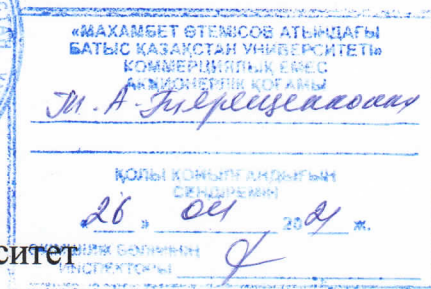 «МАХАМБЕТ ӨТЕМІСОВ АТЫНДАҒЫ
БАТЫС ҚАЗАҚСТАН УНИВЕРСИТЕТІ»
КОММЕРЦИЯЛЫҚ ЕМЕС
АКЦИОНЕРЛІК ҚОҒАМЫ
Т. А. Терещенконың
ҚОЛЫ ҚОЙЫЛҒАНДЫҒЫН
СЕНДІРЕМІН
«26» 04 2021 ж.
ситет
БӨЛІМІНІҢ
ИНСПЕКТОРЫ